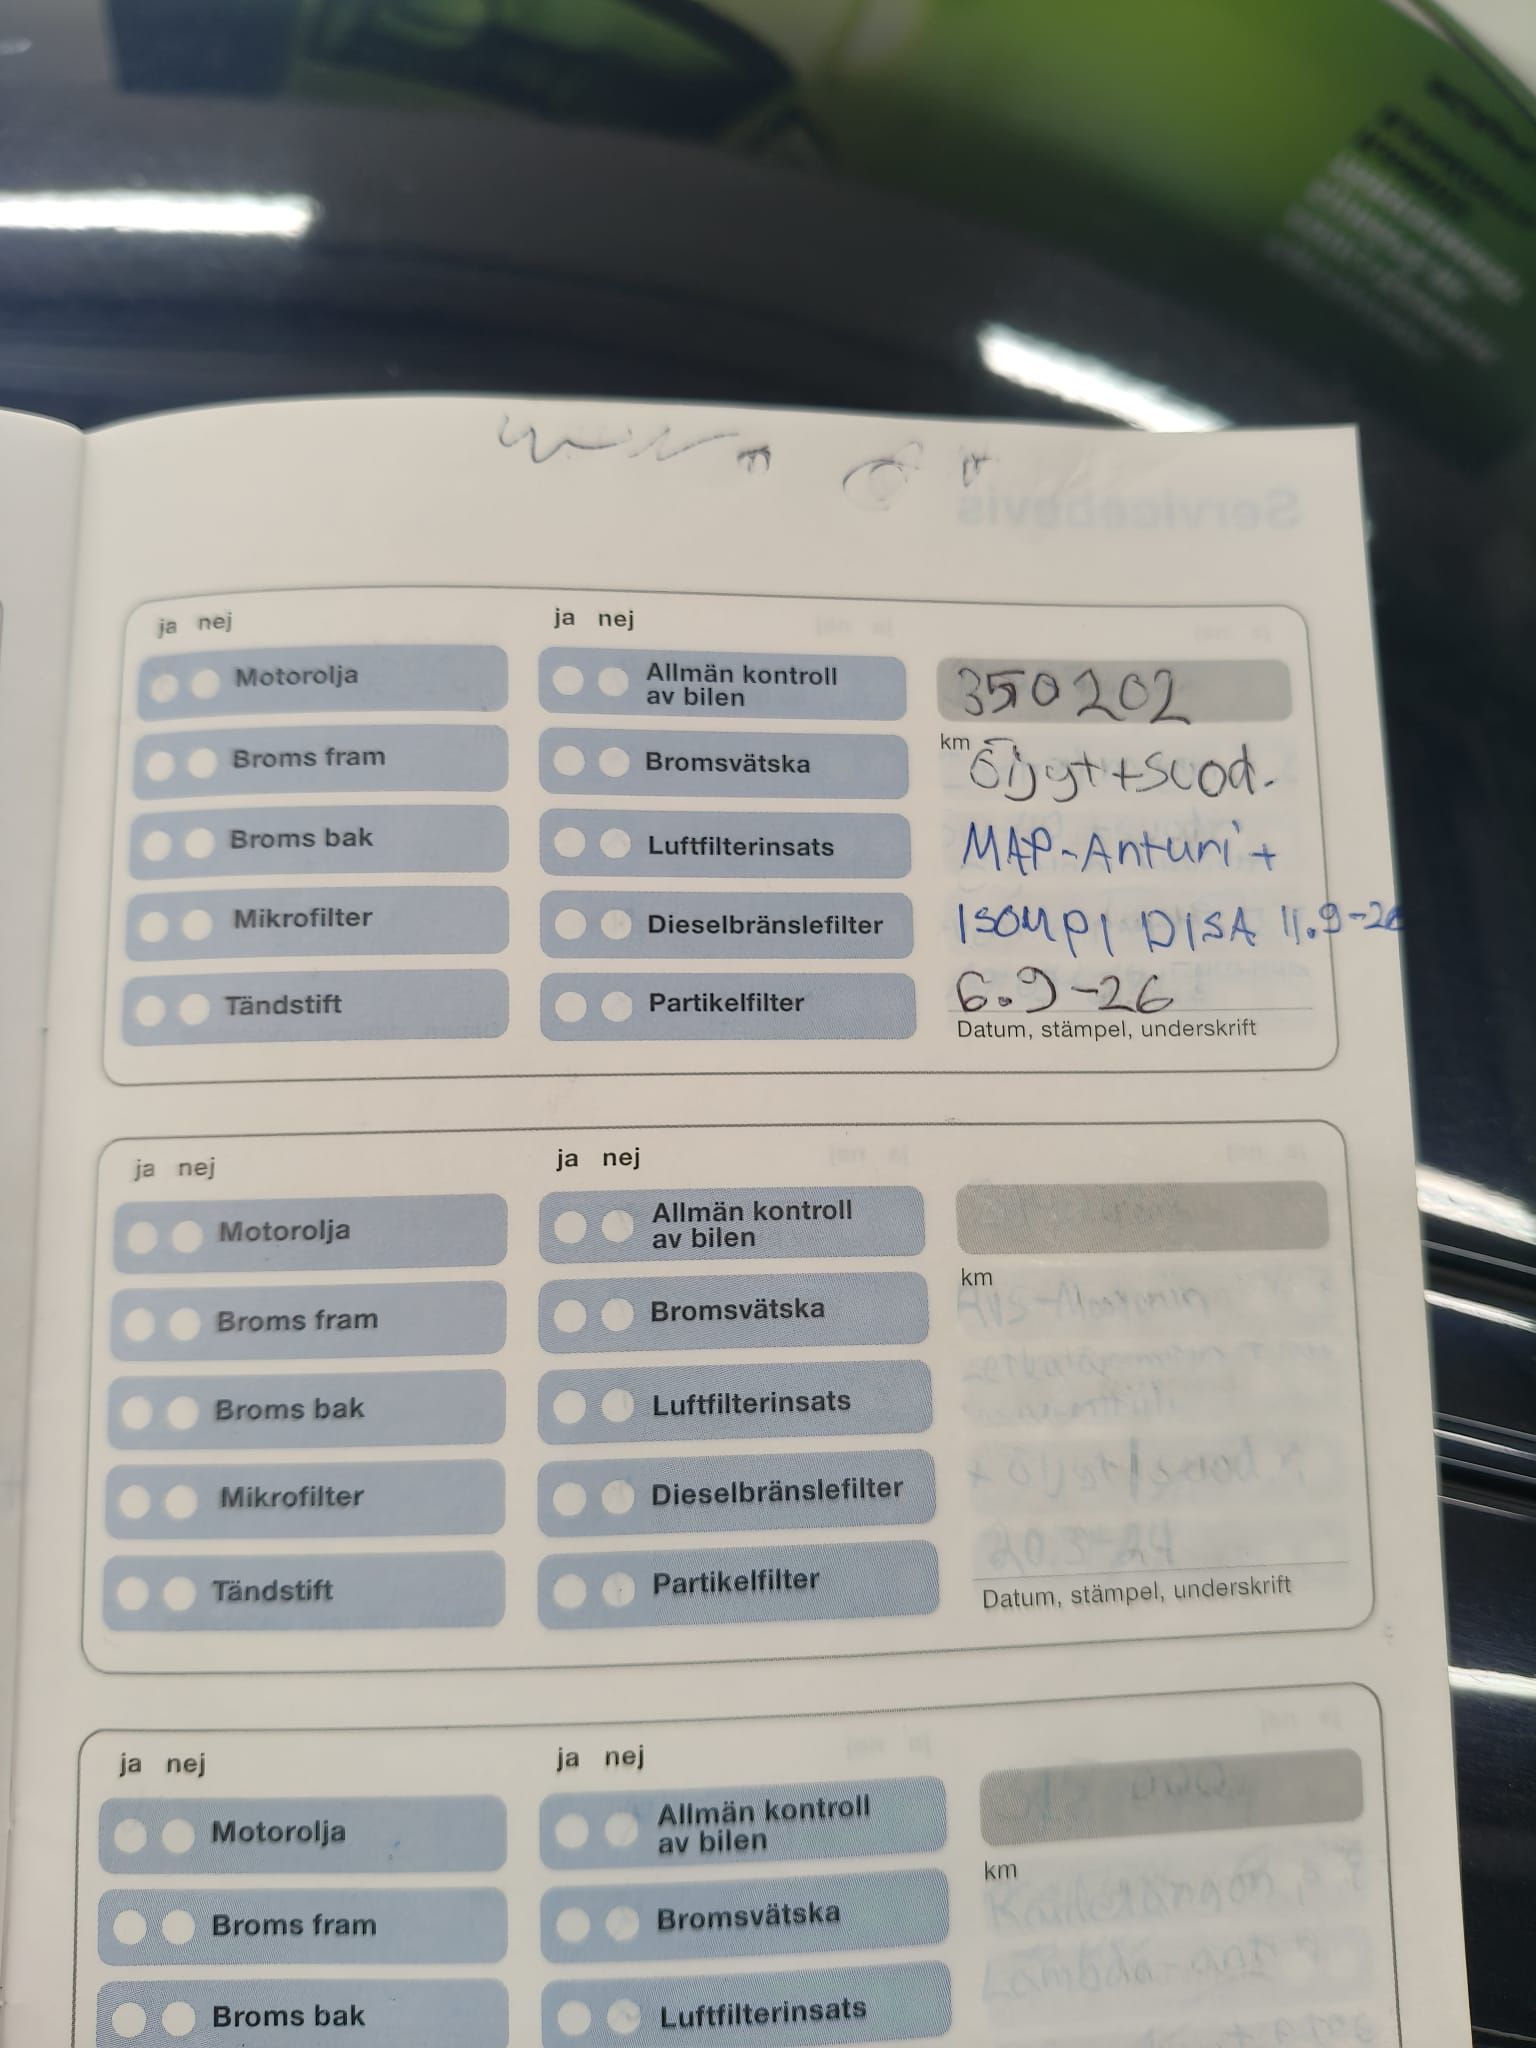 ja nej
Motorolja
Broms fram
Broms bak
Mikrofilter
Tändstift
ja nej
Allmän kontroll
av bilen
Bromsvätska
Luftfilterinsats
Dieselbränslefilter
Partikelfilter
350202
km
Öljyt+suod.
MAP-Anturi +
ISOMPI DISA 11.9-26
6.9-26
Datum, stämpel, underskrift
ja nej
Motorolja
Broms fram
Broms bak
Mikrofilter
Tändstift
ja nej
Allmän kontroll
av bilen
Bromsvätska
Luftfilterinsats
Dieselbränslefilter
Partikelfilter
km
Datum, stämpel, underskrift
ja nej
Motorolja
Broms fram
Broms bak
ja nej
Allmän kontroll
av bilen
Bromsvätska
Luftfilterinsats
km